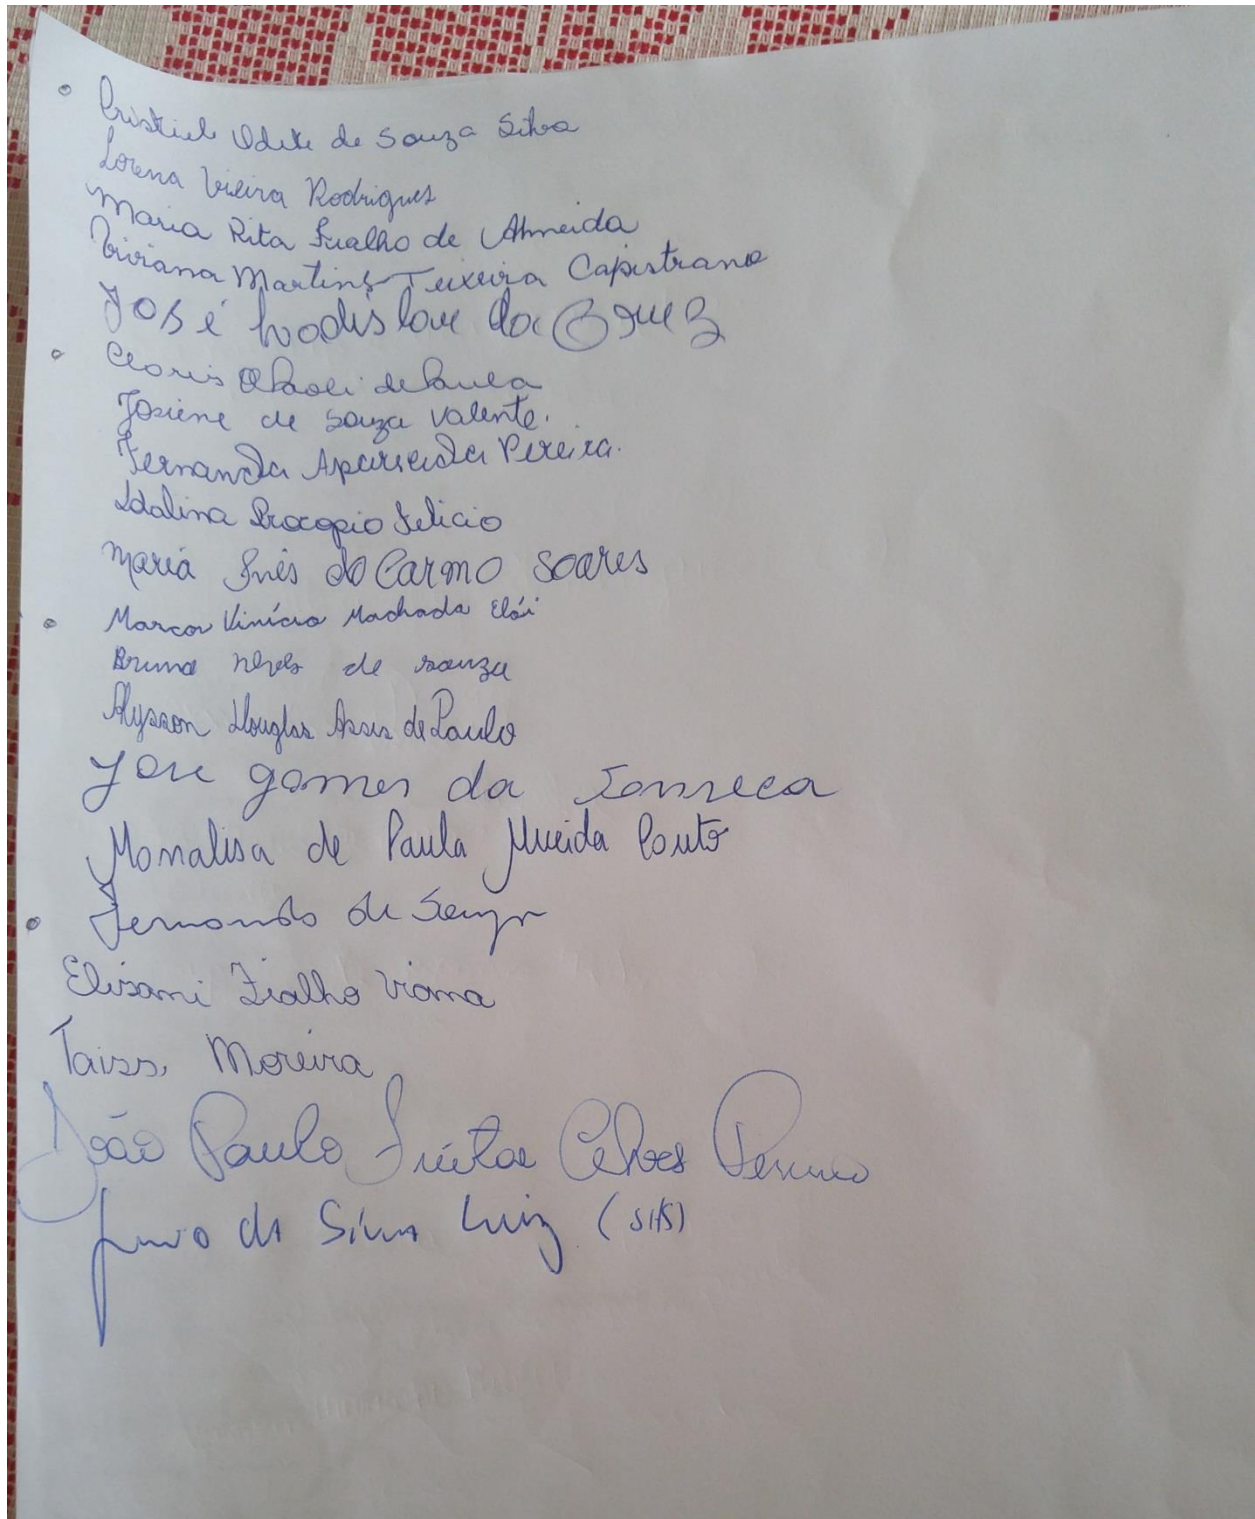 Odete de Souza Silva
Lorena Vieira Rodrigues
Maria Rita Fialho de Almeida
Viviana Martins Teixeira Capistrano
José da
de Paula
Josiene de Souza Valente.
Fernanda Aparecida Pereira.
Idalina Procopio Felicio
Maria Inês do Carmo Soares
Marcos Vinício Machado Elói
Bruno Neves de Souza
Alysson Douglas Assis de Paulo
Jose gomes da Fonseca
Monalisa de Paula Couto
Fernando de Souza
Elisani Fialho Viana
Moreira
João Paulo Freitas
da Silva Luiz